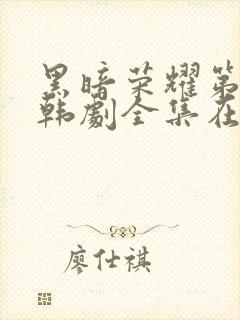 黑暗荣耀第
韩剧全集在
廖仕祺